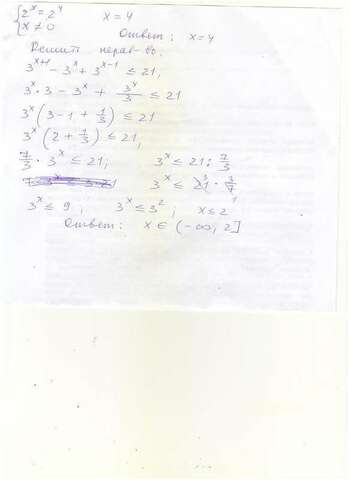 { 2^x = 2^4    x = 4
{ x ≠ 0    Ответ: x = 4
Решить нерав-во:
3^(x+1) - 3^x + 3^(x-1) ≤ 21,
3^x · 3 - 3^x + 3^x/3 ≤ 21
3^x (3 - 1 + 1/3) ≤ 21
3^x (2 + 1/3) ≤ 21,
7/3 · 3^x ≤ 21;    3^x ≤ 21 : 7/3
3^x ≤ 21 · 3/7
3^x ≤ 9;    3^x ≤ 3^2;    x ≤ 2
Ответ: x ∈ (-∞, 2]